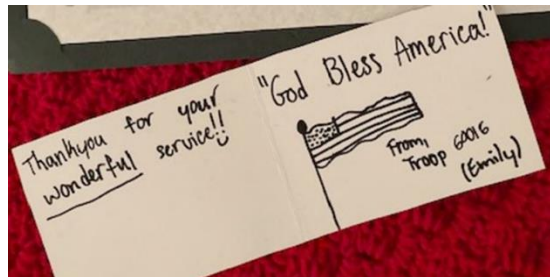 Thankyou for your
wonderful service!!
"God Bless America!"
From,
Troop 60016
(Emily)